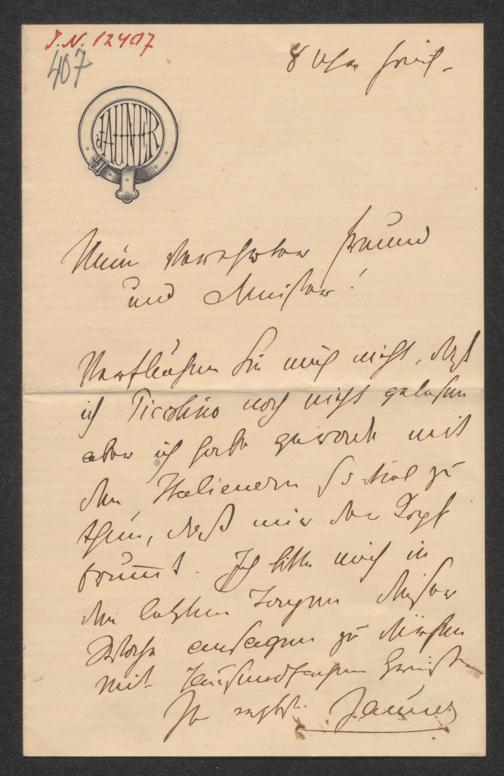 I.N. 12407
407
8 Uhr früh.
JAUNER
Mein verehrter Freund
und Meister!
Verfluchen Sie mich nicht, daß
ich Piccolino noch nicht gelesen
aber ich habe gerade mit
den Italienern so viel zu
thun, daß mir der Kopf
brummt. Ich bitte mich in
den letzten Tagen dieser
Woche ansagen zu dürfen
mit tausendfachem Gruß
Ihr Jauner